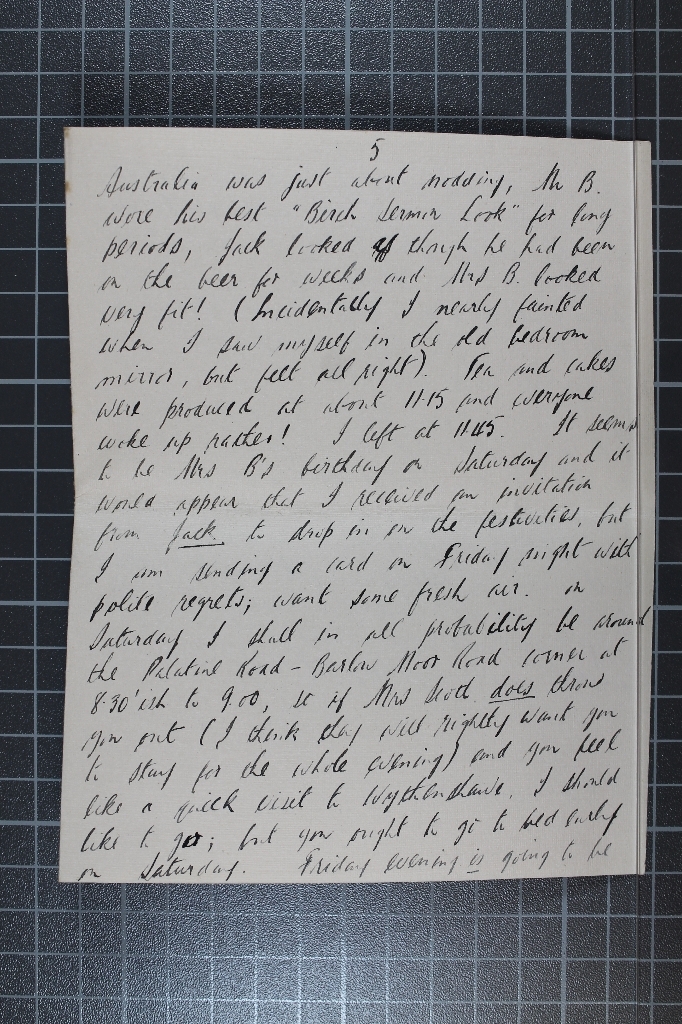 5
Australia was just about nodding, Mr B.
wore his best "Birch Sermon Look" for long
periods, Jack looked as though he had been
on the beer for weeks and Mrs B. looked
very fit! (Incidentally I nearly fainted
when I saw myself in the old bedroom
mirror, but felt all right). Tea and cakes
were produced at about 11.15 and everyone
woke up rather! I left at 11.45. It seems
to be Mrs B's birthday on Saturday and it
would appear that I received an invitation
from Jack to drop in on the festivities, but
I am sending a card on Friday night with
polite regrets; want some fresh air. On
Saturday I shall in all probability be around
the Palatine Road - Barlow Moor Road corner at
8.30'ish to 9.00, so if Mrs Scott does throw
you out (I think they will rightly want you
to stay for the whole evening) and you feel
like a quick visit to Wythenshawe, I should
like to go; but you ought to go to bed early
on Saturday. Friday evening is going to be